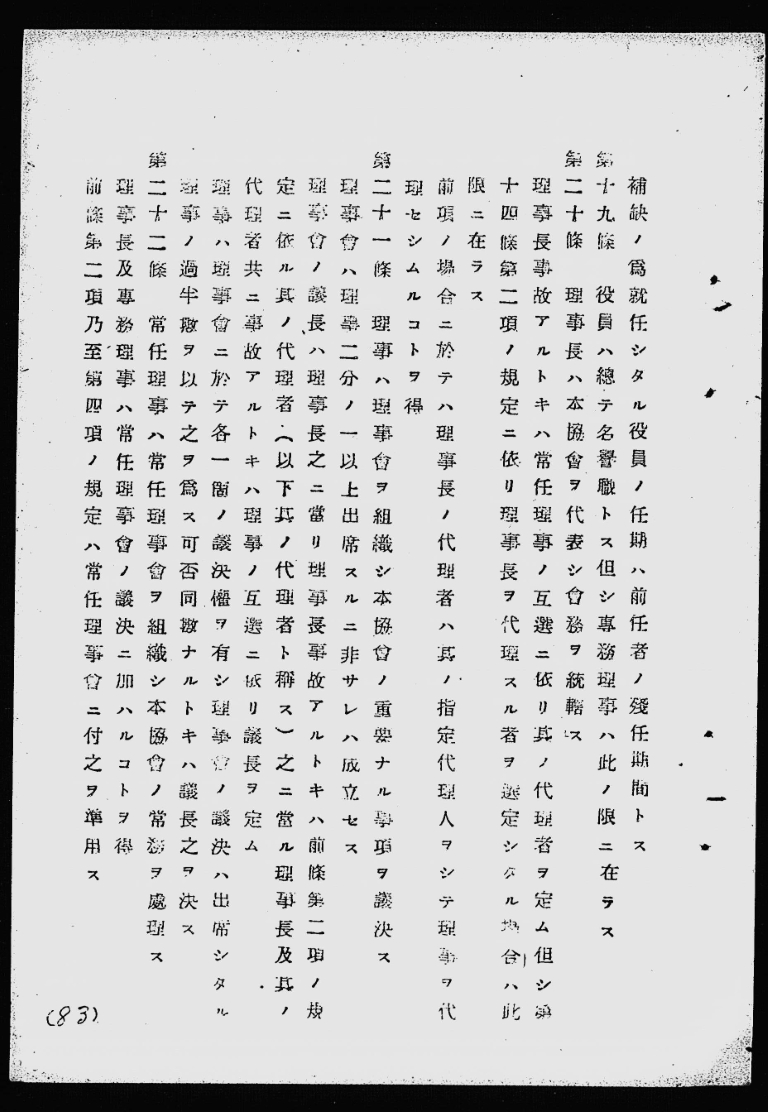 補缺ノ爲就任シタル役員ノ任期ハ前任者ノ殘任期間トス
第十九條　役員ハ總テ名譽職トス但シ專務理事ハ此ノ限ニ在ラス
第二十條　理事長ハ本協會ヲ代表シ會務ヲ統轄ス
理事長事故アルトキハ常任理事ノ互選ニ依リ其ノ代理者ヲ定ム但シ第
十四條第二項ノ規定ニ依リ理事長ヲ代理スル者ヲ選定シタル場合ハ此
限ニ在ラス
前項ノ場合ニ於テハ理事長ノ代理者ハ其ノ指定代理人ヲシテ理事ヲ代
理セシムルコトヲ得
第二十一條　理事ハ理事會ヲ組織シ本協會ノ重要ナル事項ヲ議決ス
理事會ハ理事二分ノ一以上出席スルニ非サレハ成立セス
理事會ノ議長ハ理事長之ニ當リ理事長事故アルトキハ前條第二項ノ規
定ニ依ル其ノ代理者（以下其ノ代理者ト稱ス）之ニ當ル理事長及其ノ
代理者共ニ事故アルトキハ理事ノ互選ニ依リ議長ヲ定ム
理事ハ理事會ニ於テ各一箇ノ議決權ヲ有シ理事會ノ議決ハ出席シタル
理事ノ過半數ヲ以テ之ヲ爲ス可否同數ナルトキハ議長之ヲ決ス
第二十二條　常任理事ハ常任理事會ヲ組織シ本協會ノ常務ヲ處理ス
理事長及專務理事ハ常任理事會ノ議決ニ加ハルコトヲ得
前條第二項乃至第四項ノ規定ハ常任理事會ニ付之ヲ準用ス
(83)